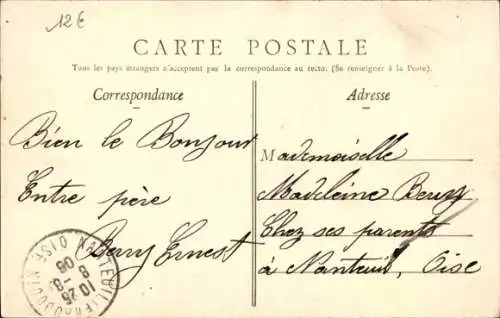 12 €
CARTE POSTALE
Tous les pays étrangers n'acceptent pas la correspondance au recto. (Se renseigner à la Poste).
Correspondance
Adresse
Bien le Bonjour
Entre père
Berry Ernest
Mademoiselle
Madeleine Berry
Chez ses parents
à Nanteuil, Oise
NANTEUIL
OISE
10 25
8 - 3
06